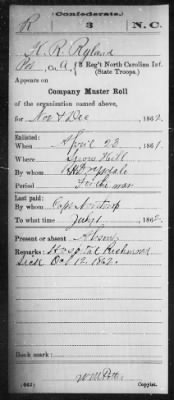 Confederate.
R 3 N.C.
H. R. Ryland
Co. A, 3 Reg't North Carolina Inf.
(State Troops.)
Appears on
Company Muster Roll
of the organization named above,
for Nov & Dec, 1862.
Enlisted:
When April 23 1861.
Where
By whom
Period For the war
Last paid:
By whom Capt
To what time July 1 1862.
Present or absent Absent
Remarks: Hospital Richmond
Sick Oct 12 1862.
Book mark:
(642)
Copyist.